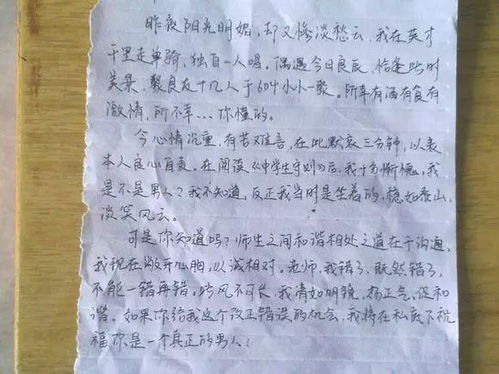 昨夜阳光明媚,却又惨淡愁云,我在英才
千里走单骑,独自一人喝。偶遇今日良辰,恰逢此时
美景,聚良友十几人于604小小一聚。所幸有酒有食有
激情,所不幸...你懂的。
今心情沉重,有苦难言,在此默哀三分钟,以表
本人良心自责。在阅读《中学生守则》后,我十分惭愧,我
是不是男人?我不知道,反正我当时是坐着的,稳如泰山,
淡笑风云。
可是你知道吗?师生之间和谐相处之道在于沟通,
我现在敞开心胸,以诚相对,老师,我错了,既然错了,
不能一错再错,此风不可长,我清如明镜,扬正气,促和
谐。如果你给我这个改正错误的机会,我将在私底下祝
福你是一个真正的男人!